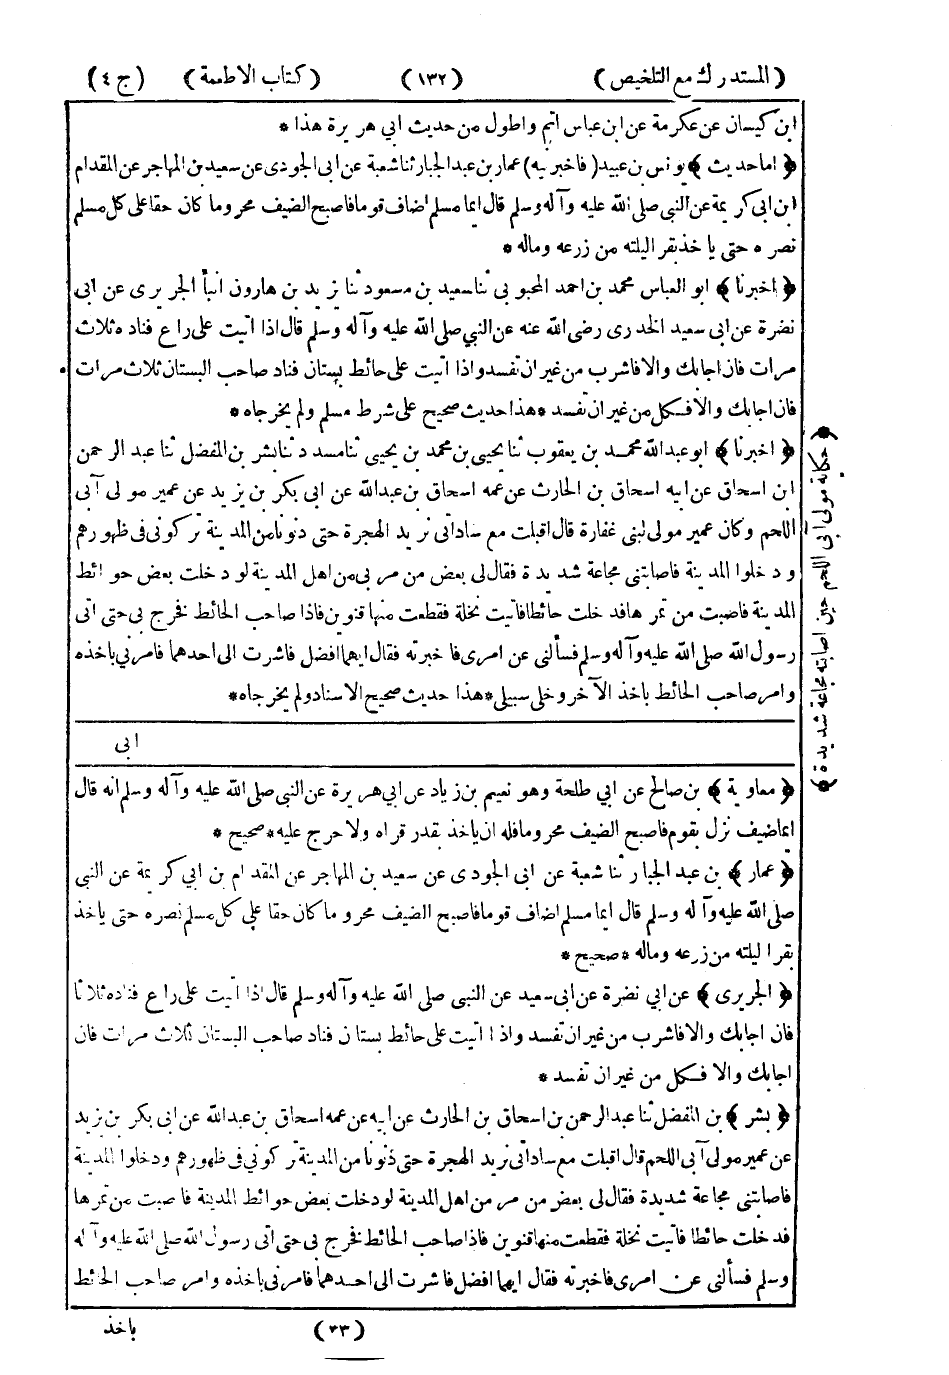 (المستدرك مع التلخيص) (١٣٢) (كتاب الاطعمة) (ج ٤)
ابن كيسان عن عكرمة عن ابن عباس اتم واطول من حديث ابى هريرة هذا *
﴿ اما حديث ﴾ يونس بن عبيد (فاخبر به) عمار بن عبد الجبار ثنا شعبة عن ابى الجودى عن سعيد بن المهاجر عن المقدام
ابن ابى كريمة عن النبى صلى الله عليه وآله وسلم قال ايما مسلم اضاف قوما فاصبح الضيف محروما كان حقا على كل مسلم
نصره حتى ياخذ بقر اليلته من زرعه وماله *
﴿ اخبرنا ﴾ ابو العباس محمد بن احمد المحبوبى ثنا سعيد بن مسعود ثنا يزيد بن هارون انبأ الجريرى عن ابى
نضرة عن ابى سعيد الخدرى رضى الله عنه عن النبي صلى الله عليه وآله وسلم قال اذا اتيت على راع فناده ثلاث
مرات فان اجابك والا فاشرب من غير ان تفسد واذا اتيت على حائط بستان فناد صاحب البستان ثلاث مرات
فان اجابك والا فكل من غير ان تفسد * هذا حديث صحيح على شرط مسلم ولم يخرجاه *
﴿ اخبرنا ﴾ ابو عبد الله محمد بن يعقوب ثنا يحيى بن محمد بن يحيى ثنا مسدد ثنا بشر بن المفضل ثنا عبد الرحمن
ابن اسحاق عن ابيه اسحاق بن الحارث عن عمه اسحاق بن عبد الله عن ابى بكر بن يزيد عن عمير مولى آبى
اللحم وكان عمير مولى لبنى غفارة قال اقبلت مع ساداتى نريد الهجرة حتى دنونا من المدينة تركونى فى ظهورهم
ودخلوا المدينة فاصابتنى مجاعة شديدة فقال لى بعض من مر بى من اهل المدينة لو دخلت بعض حوائط
المدينة فاصبت من تمرها فدخلت حائطا فاتيت نخلة فقطعت منها قنوين فاذا صاحب الحائط فخرج بى حتى اتى
رسول الله صلى الله عليه وآله وسلم فسألنى عن امرى فاخبرته فقال ايهما افضل فاشرت الى احدهما فامرنى باخذه
وامر صاحب الحائط باخذ الآخر وخلى سبيلى * هذا حديث صحيح الاسناد ولم يخرجاه *
﴿ حكاية مولى ابى اللحم حين اصابته مجاعة شديدة ﴾
ابى
﴿ معاوية ﴾ بن صالح عن ابى طلحة وهو نعيم بن زياد عن ابى هريرة عن النبى صلى الله عليه وآله وسلم انه قال
ايما ضيف نزل بقوم فاصبح الضيف محروما فله ان ياخذ بقدر قراه ولا حرج عليه * صحيح *
﴿ عمار ﴾ بن عبد الجبار ثنا شعبة عن ابى الجودى عن سعيد بن المهاجر عن المقدام بن ابى كريمة عن النبى
صلى الله عليه وآله وسلم قال ايما مسلم اضاف قوما فاصبح الضيف محروما كان حقا على كل مسلم نصره حتى ياخذ
بقرا ليلته من زرعه وماله * صحيح *
﴿ الجريرى ﴾ عن ابى نضرة عن ابى سعيد عن النبى صلى الله عليه وآله وسلم قال اذا اتيت على راع فناده ثلاثا
فان اجابك والا فاشرب من غير ان تفسد واذا اتيت على حائط بستان فناد صاحب البستان ثلاث مرات فان
اجابك والا فكل من غير ان تفسد *
﴿ بشر ﴾ بن المفضل ثنا عبد الرحمن بن اسحاق بن الحارث عن ابيه عن عمه اسحاق بن عبد الله عن ابى بكر بن يزيد
عن عمير مولى آبى اللحم قال اقبلت مع ساداتى نريد الهجرة حتى دنونا من المدينة تركونى فى ظهورهم ودخلوا المدينة
فاصابتنى مجاعة شديدة فقال لى بعض من مر من اهل المدينة لو دخلت بعض حوائط المدينة فاصبت من تمرها
فدخلت حائطا فاتيت نخلة فقطعت منها قنوين فاذا صاحب الحائط فخرج بى حتى اتى رسول الله صلى الله عليه وآله
وسلم فسألنى عن امرى فاخبرته فقال ايهما افضل فاشرت الى احدهما فامرنى باخذه وامر صاحب الحائط
باخذ (٣٣)